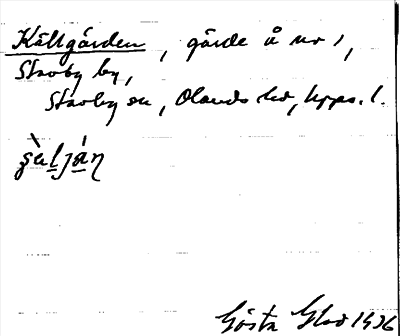 Källgården, gärde å nr 1,
Stavby by,
Stavby sn, Olands hd, Upps. l.
Gösta Glad 1936